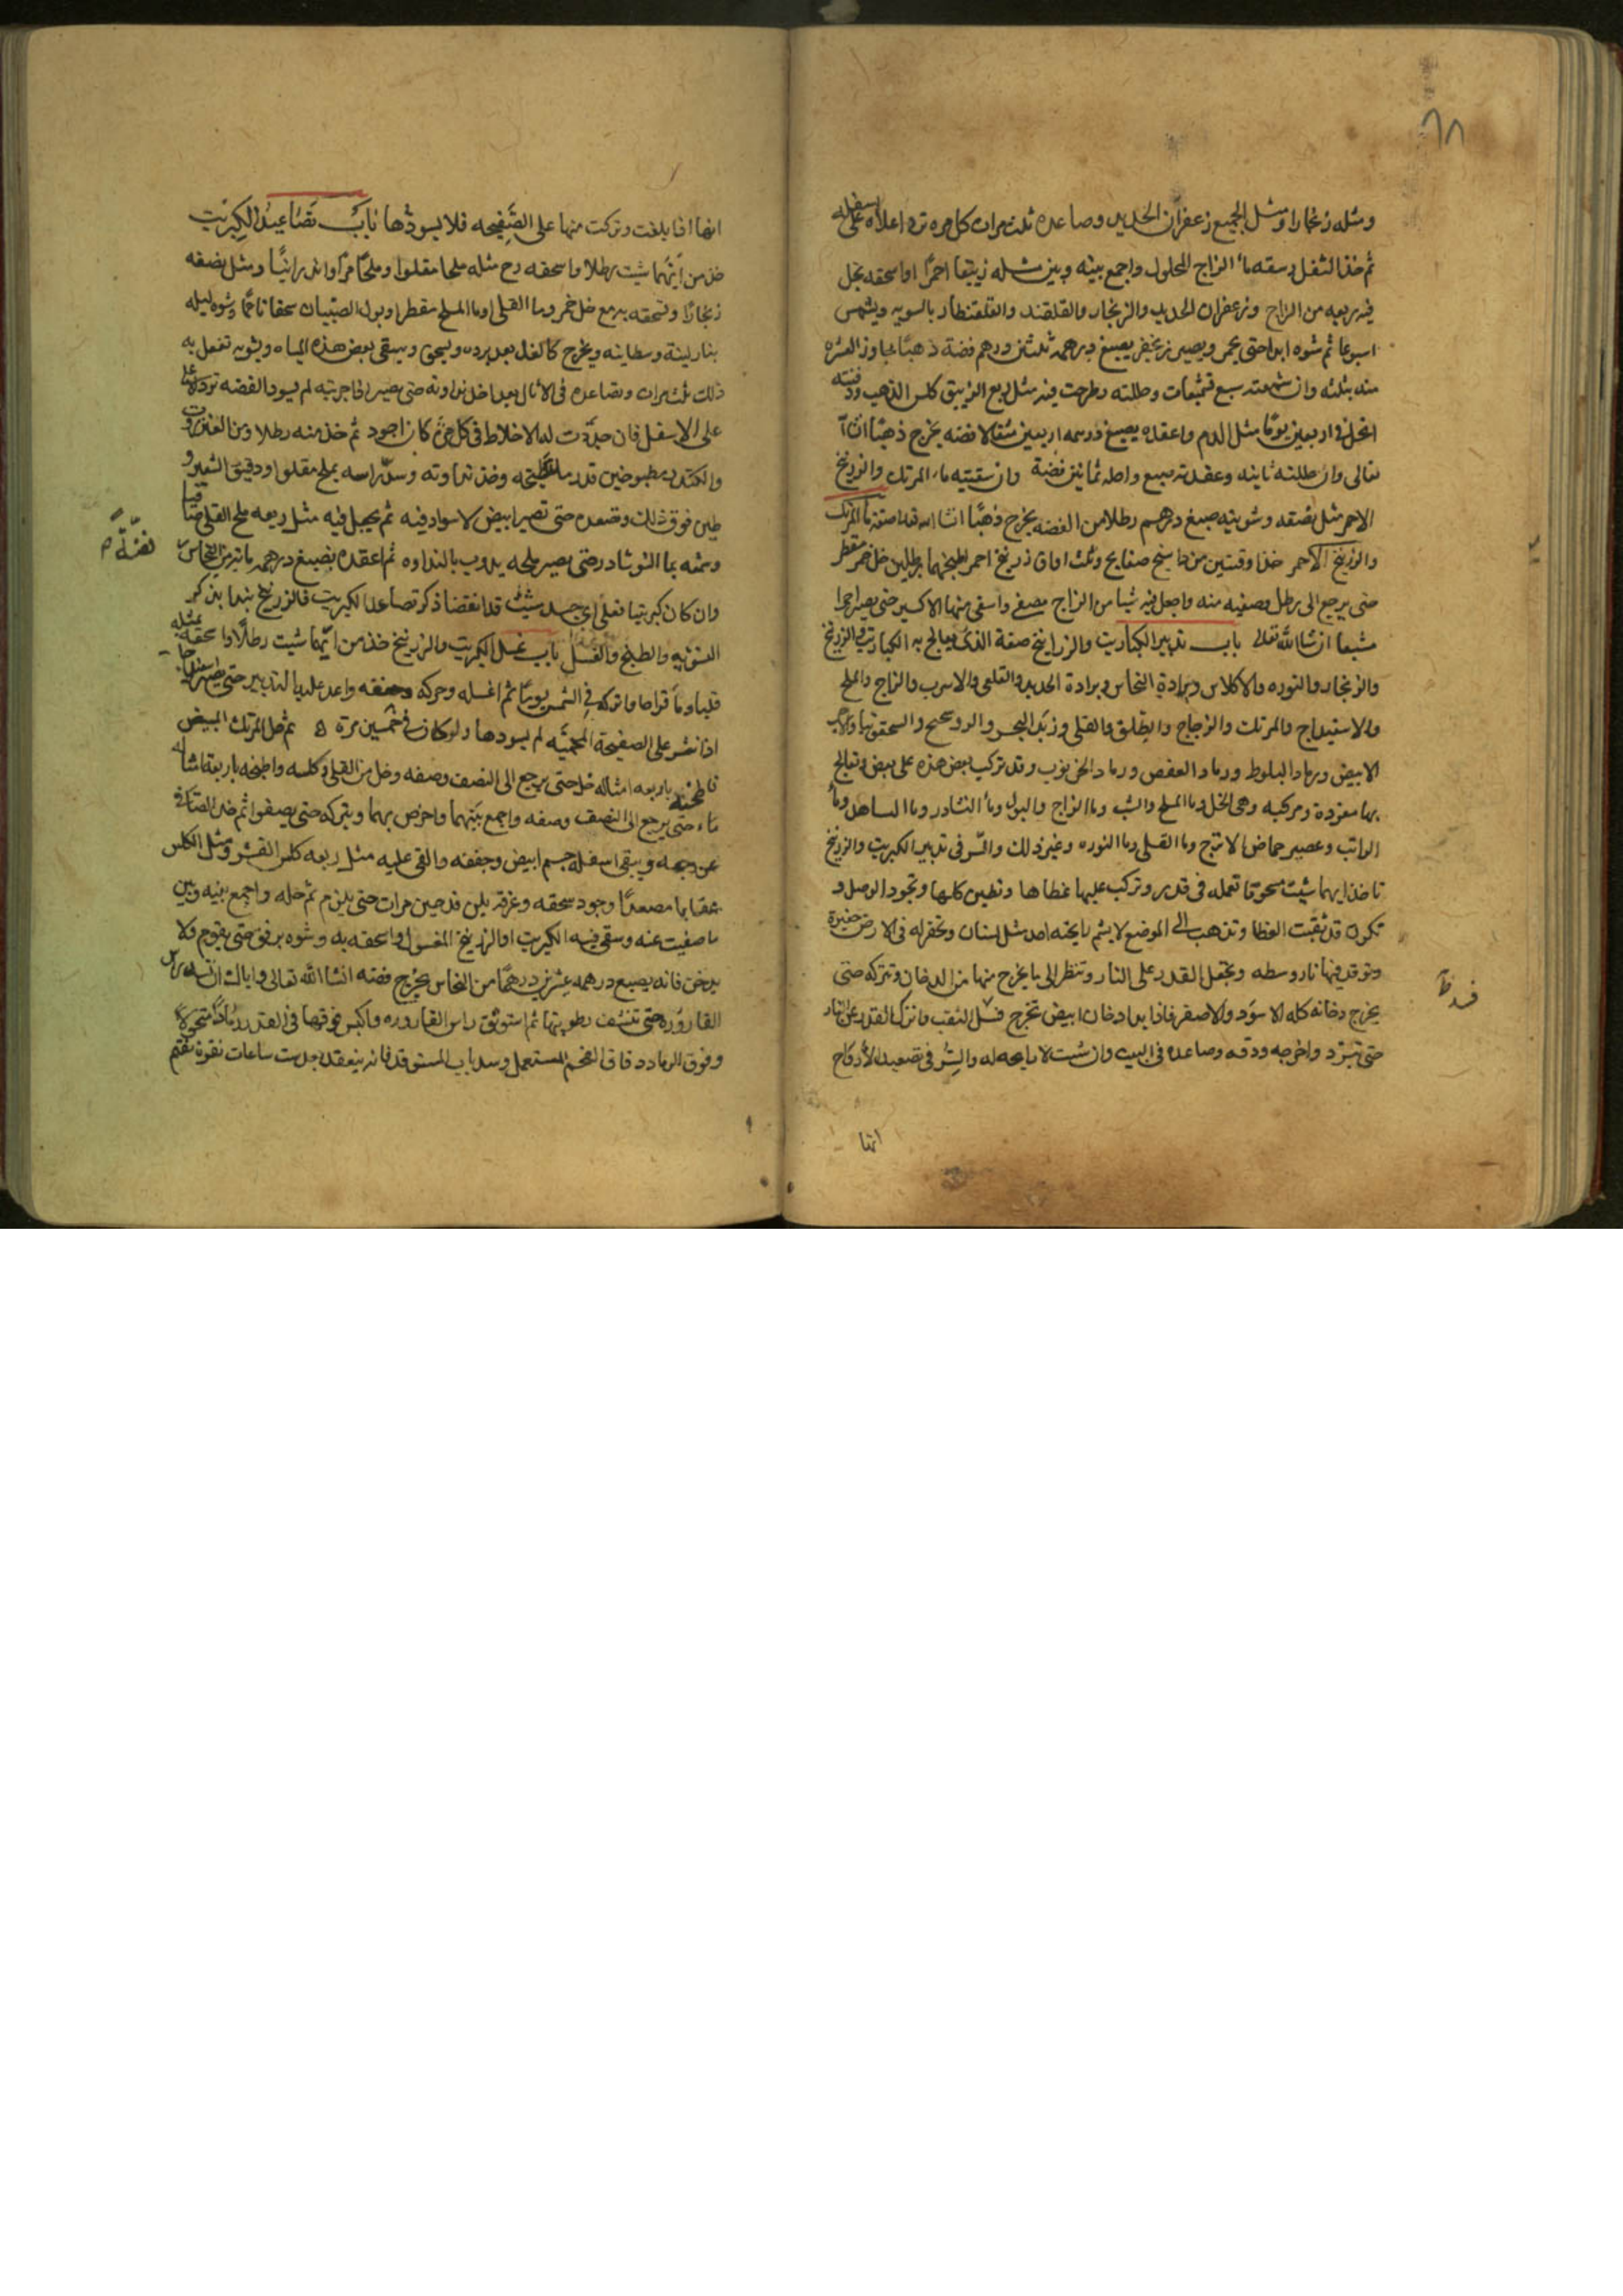 ٦٨
ومثله زنجارا ومثل الجميع زعفران الحديد وصاعده ثلث مرات كل مره ترد اعلاه على اسفله
ثم خذ الثفل وسقه ماء الزاج المحلول واجمع بينه وبين مثله زيبقا احمرا او اسحقه بخل
فيه ربعه من الزاج وزعفران الحديد والزنجار والقلقند والقلقنطار بالسويه ويشمس
اسبوعا ثم شوه ابدا حتى يحمر ويصير زنجفر يصبغ درهمه ثلثين درهم فضة ذهبا يجاوز العشره
منه بثلثه وان شمعته سبع تشميعات وحللته وطرحت فيه مثل ربع الزيبق كلس الذهب ودفنته
انحل في اربعين يوما مثل الدم واعقده يصبغ درهمه اربعين مثقالا فضه يخرج ذهبا ان شا
تعالى وان حللته ثانيه وعقدته صبغ واحده ثمانين فضة وان سقيته ماء المرتك والزرنيخ
الاحمر مثل نصفه وشويته صبغ درهم رطلا من الفضه يخرج ذهبا انشا الله تعالى صفة ماء المرتك
والزرنيخ الاحمر خذ اوقيتين مرداسنج صفايح وثلث اواق زرنيخ احمر اطبخهما برطلين خل خمر مقطر
حتى يرجع الى رطل وصفيه منه واجعل فيه شيا من الزاج مصفى واسقى منهما الاكسير حتى يصير احمرا
مشبعا ان شا الله تعالى باب تدبير الكباريت والزرانيخ صفة الذى يعالج به الكباريت والزرنيخ
والزنجار والنوره والاكلاس وبرادة النحاس وبرادة الحديد والقلعى والاسرب والزاج والملح
والاسفيداج والمرتك والزجاج والطلق والقلى وزبد البحر والروسختج والسحق بها والاجر
الابيض ورماد البلوط ورماد العفص ورماد الخرنوب وقد تركب بعض هذه على بعض وتعالج
بها مفردة ومركبه وهى الخل وما الملح والشب وما الزاج والبول وماء النشادر وما الساهل وماء
الراتب وعصير حماض الاترج وما القلى وما النوره وغير ذلك والسر فى تدبير الكبريت والزرنيخ
تاخذ ايهما شيت مسحوقا تعمله فى قدر وتركب عليها غطاها وتطين كلها وتجود الوصل و
تكون قد ثقبت الغطا وتذهب الى الموضع لا يشم رايحته احد مثل بستان وتحفر له فى الارض حفيرة
وتوقد فيها نار وسطه وتجعل القدر على النار وتنظر الى ما يخرج منها من الدخان وتتركه حتى
يخرج دخانه كله الاسود والاصفر فاذا بدا دخان ابيض تخرج فسل الثقب فانزل القدر عن النار
حتى تبرد واخرجه ودقه وصاعده فى البيت وان شيت لا رايحه له والسر فى تصعيد الارواح
انها
انها اذا بلغت وتركت منها على الصفيحه فلا يسودها باب تصاعيد الكبريت
خذ من ايهما شيت رطلا واسحقه مع مثله ملحا مقلوا وملحا مرا واندرانيا ومثل نصفه
زنجارا وتسحقه بدمع خل خمر وما القلى اوما الملح مقطر او بول الصبيان سحقا ناعما وشوه ليله
بنار لينة وسطانيه ويخرج كالغد بعد برده ويسحق ويسقى بعض هذه المياه وبشويه تفعل به
ذلك ثلث مرات وتصاعده فى الاثال بعد اخذ نداوته حتى يصير اذا جربته لم يسود الفضه تردد اعلاه
على الاسفل فان جددت له الاخلاط فى كل مرة كان اجود ثم خذ منه رطلا ومن العنزروت
وسد راسه بملح مقلوا ودقيق الشعير و
طين فوق ذلك وتصعده حتى تصير ابيض لاسواد فيه ثم يجعل فيه مثل ربعه ملح القلى صافيا
وسقه بما النوشادر حتى يصير ملحه يذوب بالنداوه ثم اعقده يصبغ درهمه ماتين من النحاس
فضة
وان كان كبريتيا فعلى اى جسد شيت قد انقضا ذكر تصاعد الكبريت فالزرنيخ نبدا بذكر
التشويه والطبخ والغسل باب غسل الكبريت والزرنيخ خذ من ايهما شيت رطلا واسحقه بمثله
قليا وما قراحا واتركه فى الشمس يوما ثم اغسله وحركه وجففه واعد عليه بالتدبير حتى يصير ابيضا
اذا نشر على الصفيحة المحميه لم يسودها ولو كان فى خمسين مرة ثم خل المرتك المبيض
فاطبخه باربعه امثاله خل حتى يرجع الى النصف وصفه وخذ من القلى وكلسه واطبخه باربعة امثاله
ماء حتى يرجع الى النصف وصفه واجمع بينهما واخرص بهما ويتركه حتى يصفوا ثم خذ الصافى
عن وجهه ويبقى اسفله جسم ابيض وجففه والقى عليه مثل ربعه كلس القشر ومثل الكلس
عقابا مصعدا وجود سحقه وغرقه بلبن قد حين مرات حتى يلين ثم حله واجمع بينه وبين
ما صفيت عنه وسقى فيه الكبريت او الزرنيخ المغسول واسحقه به وشوه برفق حتى يقوم ولا
يدخن فانه يصبغ درهمه عشرين درهما من النحاس يخرج فضه انشا الله تعالى واياك ان تسد راس
القاروره حتى تنشف رطوبتها ثم استوثق راس القاروره واكبس فوقها فى القدر رمادا منخولا
وفوق الرماد دقاق الفحم المستعمل وسد باب المستوقد فانه ينعقد بعد ست ساعات نقرة تقيم